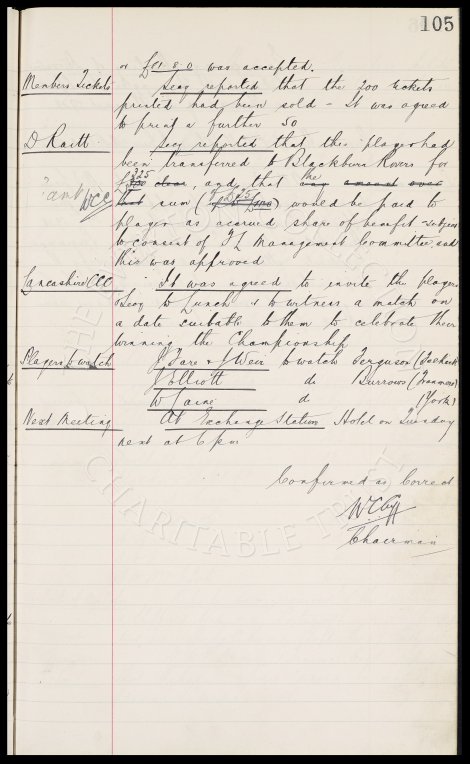 105
of £91. 8. 0 was accepted.
Members Tickets Secy reported that the 200 tickets
printed had been sold - It was agreed
to print a further 50
D Raitt. Secy reported that this player had
been transferred to Blackburn Rovers for
£325 and that the
WCC sum (£325) would be paid to
player as accrued share of benefit - subject
to consent of F L Management Committee, and
this was approved
Lancashire CCC It was agreed to invite the players
& Secy to Lunch & to witness a match on
a date suitable to them to celebrate their
winning the Championship
Players to watch J Fare & J Weir to watch Ferguson
J Elliott do Burrows (Tranmere)
W do (York)
Next Meeting At Exchange Station Hotel on Tuesday
next at 6 pm
Confirmed as Correct
Chairman
THE
CHARITABLE TRUST